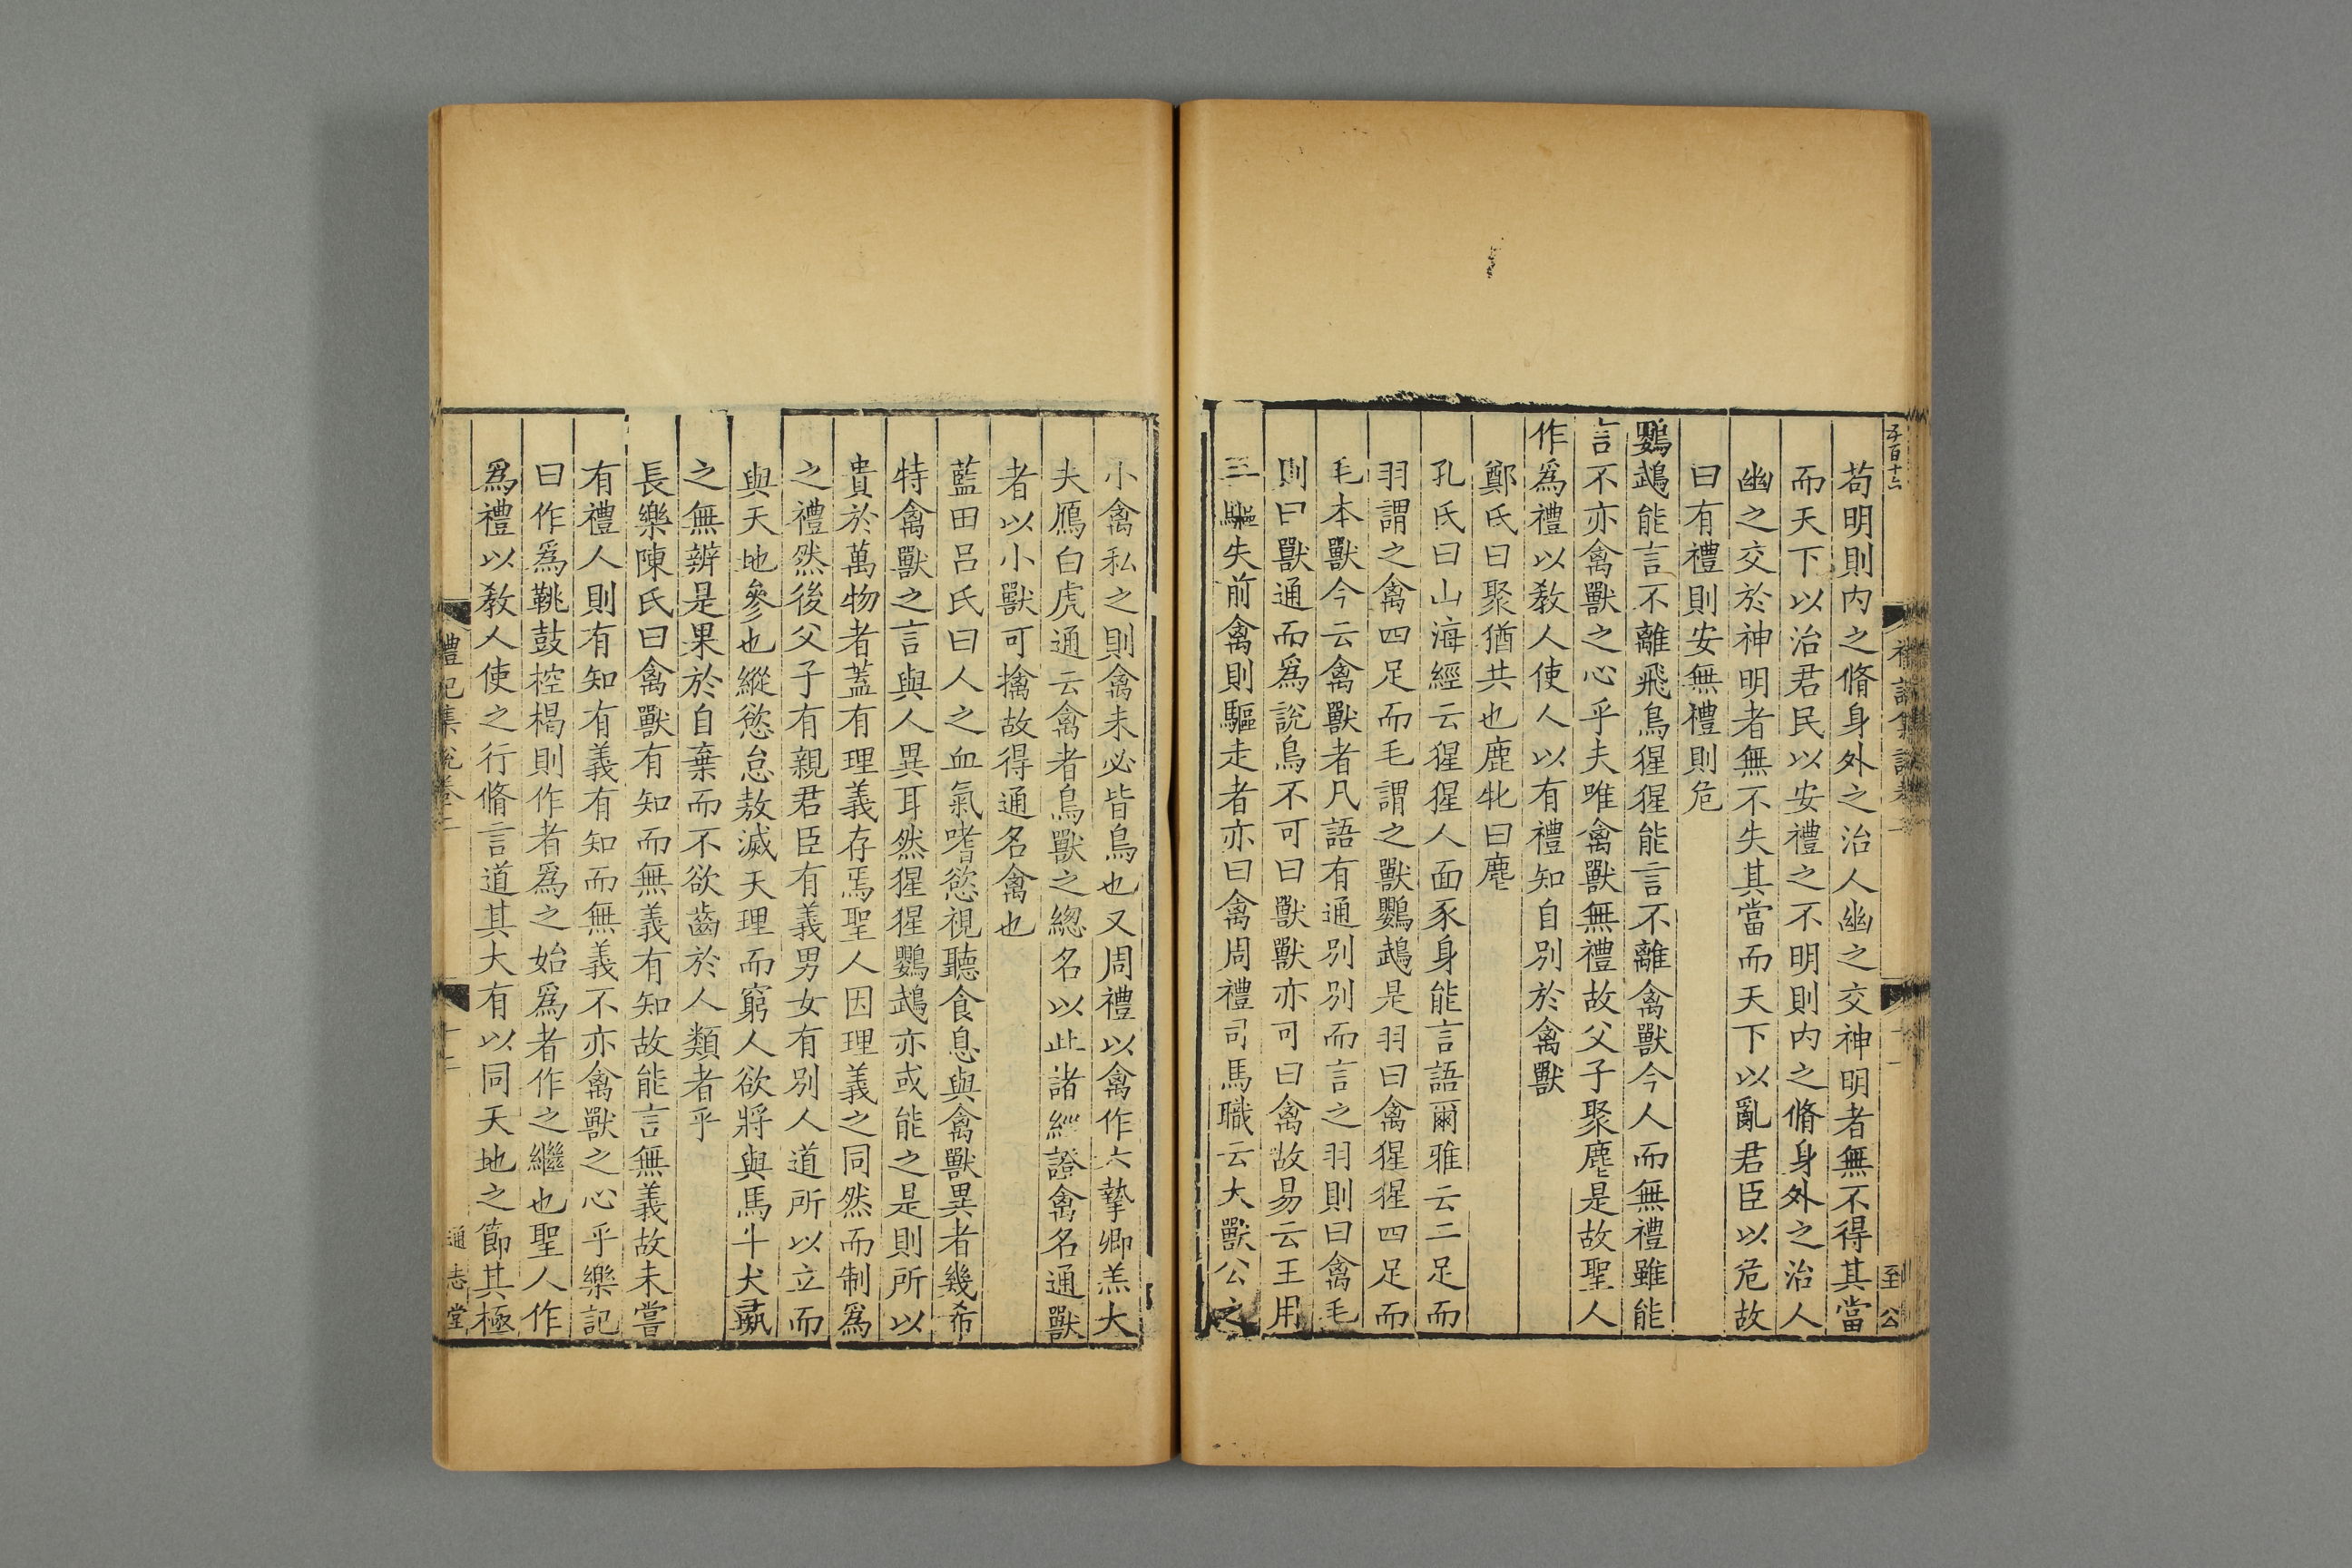 苟明則内之脩身外之治人幽之交神明者無不得其當
而天下以治君民以安禮之不明則内之脩身外之治人
幽之交於神明者無不失其當而天下以亂君臣以危故
曰有禮則安無禮則危
鸚鵡能言不離飛鳥猩猩能言不離禽獸今人而無禮雖能
言不亦禽獸之心乎夫唯禽獸無禮故父子聚麀是故聖人
作爲禮以敎人使人以有禮知自別於禽獸
鄭氏曰聚猶共也鹿牝曰麀
孔氏曰山海經云猩猩人面豕身能言語爾雅云二足而
羽謂之禽四足而毛謂之獸鸚鵡是羽曰禽猩猩四足而
毛本獸今云禽獸者凡語有通別別而言之羽則曰禽毛
則曰獸通而爲說鳥不可曰獸獸亦可曰禽故易云王用
三驅失前禽則驅走者亦曰禽周禮司馬職云大獸公之
小禽私之則禽未必皆鳥也又周禮以禽作六摯卿羔大
夫鴈白虎通云禽者鳥獸之緫名以此諸經證禽名通獸
者以小獸可擒故得通名禽也
藍田呂氏曰人之血氣嗜慾視聽食息與禽獸異者幾希
特禽獸之言與人異耳然猩猩鸚鵡亦或能之是則所以
貴於萬物者蓋有理義存焉聖人因理義之同然而制爲
之禮然後父子有親君臣有義男女有別人道所以立而
與天地參也縱慾怠敖滅天理而窮人欲將與馬牛犬彘
之無辨是果於自棄而不欲齒於人類者乎
長樂陳氏曰禽獸有知而無義有知故能言無義故未嘗
有禮人則有知有義有知而無義不亦禽獸之心乎樂記
曰作爲鞉鼓椌楬則作者爲之始爲者作之繼也聖人作
爲禮以敎人使之行脩言道其大有以同天地之節其極
禮記集説卷二
十二
通志堂